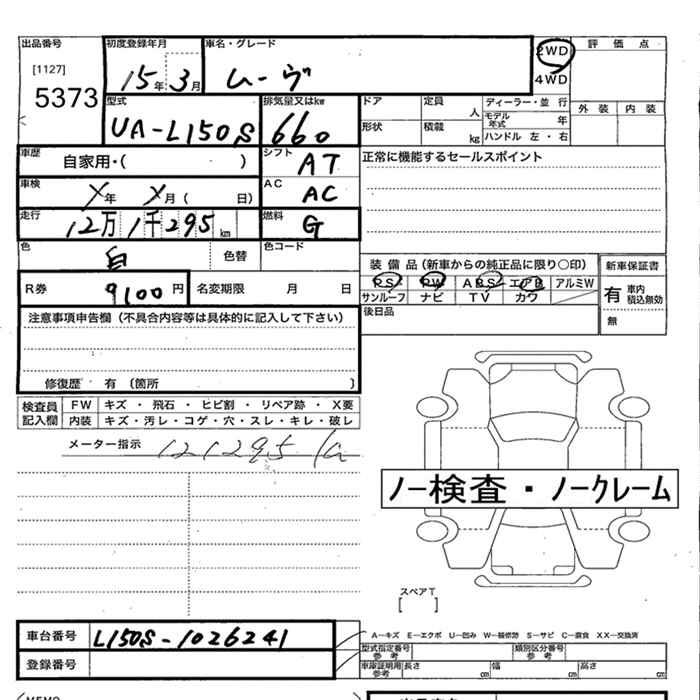 出品番号 初度登録年月 車名・グレード 2WD 評価点
[1127] 15年3月 ムーヴ 4WD
5373
型式 排気量又はkw ドア 定員 人 ディーラー・並行 外装 内装
UA-L150S 660 形状 積載 kg モデル年式 年
ハンドル 左・右
車歴 自家用・( ) シフト AT 正常に機能するセールスポイント
車検 X年 X月( 日) AC AC
走行 12万1千295km 燃料 G
色 白 色替 色コード
装備品(新車からの純正品に限り〇印) 新車保証書
R券 9100円 名変期限 月 日 PS PW ABS エアB アルミW 有 車内積込無効
サンルーフ ナビ TV カワ 無
後日品
注意事項申告欄(不具合内容等は具体的に記入して下さい)
修復歴 有 (箇所 )
検査員記入欄 FW キズ・飛石・ヒビ割・リペア跡・X要
内装 キズ・汚レ・コゲ・穴・スレ・キレ・破レ
メーター指示 121295
ノー検査・ノークレーム
スペアT
[ ]
車台番号 L150S-1026241
A-キズ E-エクボ U-凹み W-補修跡 S-サビ C-腐食 XX-交換済
登録番号 型式指定番号 参考 類別区分番号 参考
車庫証明用 参考 長さ cm 幅 cm 高さ cm
MEMO